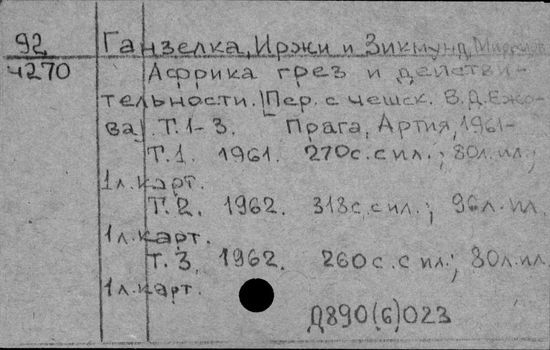 92 Ганзелка, Иржи и Зикмунд, Мирослав
Ч270 Африка грез и действи-
тельности. [Пер. с чешск. В.Д.Ежо-
ва]. Т.1-3. Прага, Артия, 1961-
Т.1. 1961. 270с. с ил.; 80л. ил.;
1л. карт.
Т.2. 1962. 318с. с ил.; 96л. ил.
1л. карт.
Т.3. 1962. 260с. с ил.; 80л. ил.
1л. карт.
Д890(6)023